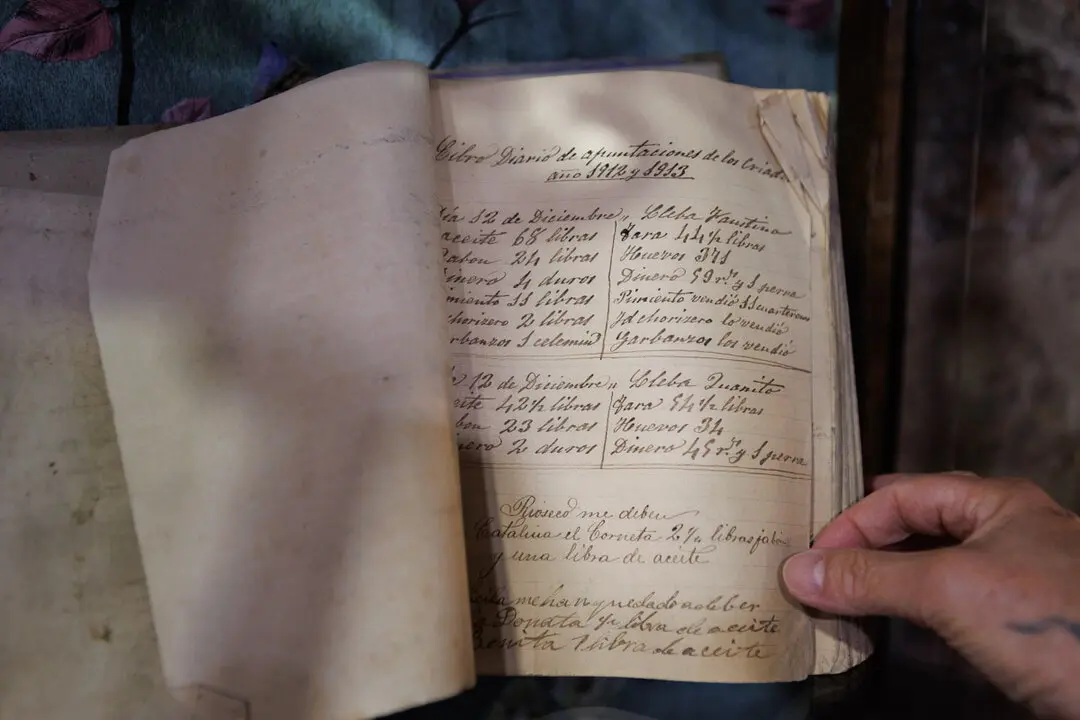 Libro Diario de apuntaciones de los Criad
año 1912 y 1913
ía 12 de Diciembre " Lleba Faustino
aceite 68 libras Tara 44½ libras
abon 24 libras Huevos 371
inero 4 duros Dinero 59 rs y 1 perra
miento 11 libras Pimiento vendió 11 cuarterones
chorizero 2 libras Id chorizero lo vendió
rbanzos 1 celemin Garbanzos los vendió
12 de Diciembre " Lleba Juanito
eite 42½ libras Tara 54½ libras
bon 23 libras Huevos 34
nero 2 duros Dinero 45 rs y 1 perra
Rioseco me deben
Catalina el Corneta libras jabon
y una libra de aceite
me han quedado a deber
Donata ½ libra de aceite
Benita 1 libra de aceite